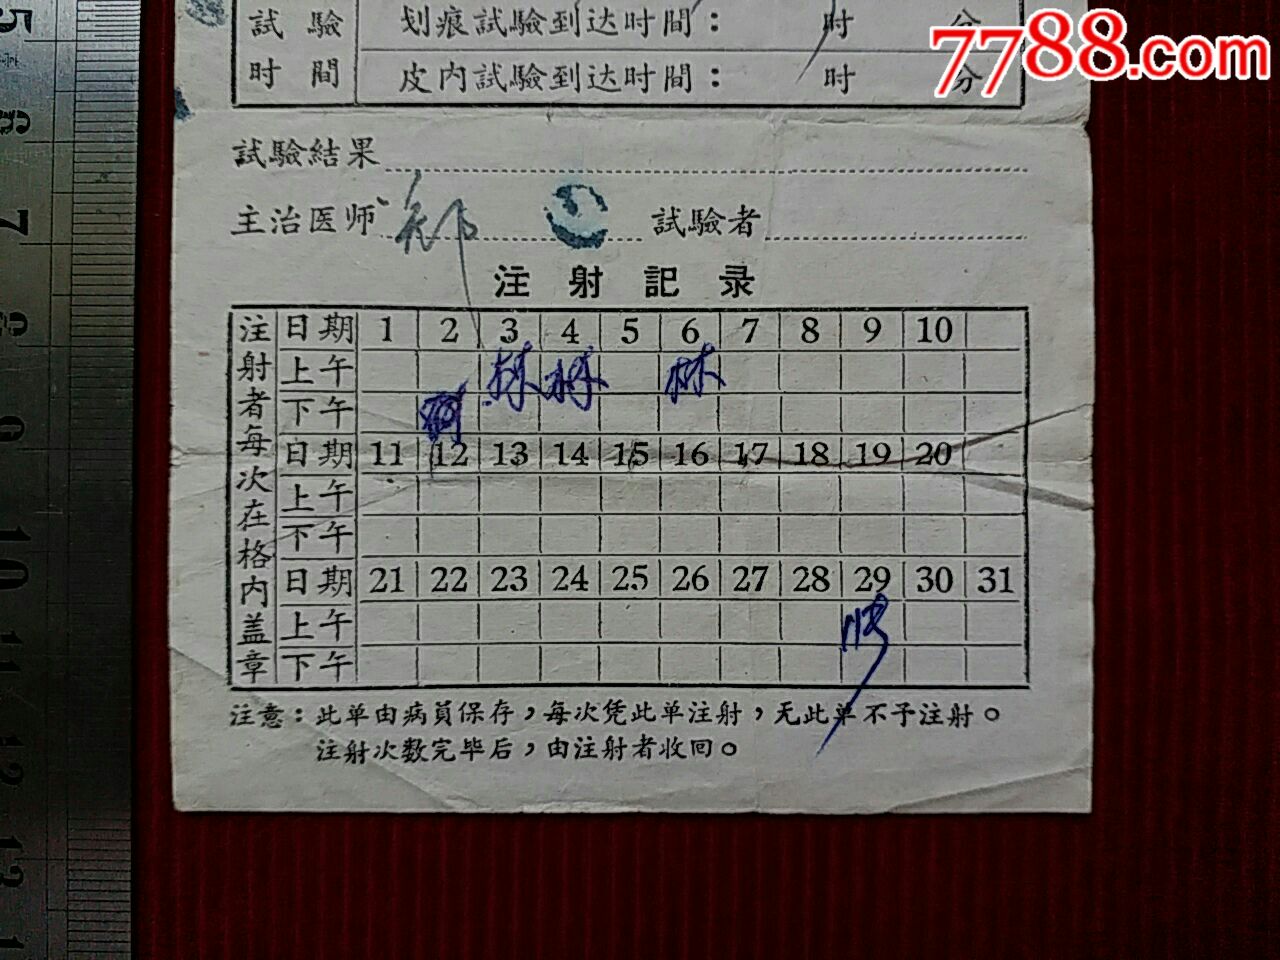 試驗 划痕試驗到达时間： 时 分
时間 皮内試驗到达时間： 时 分
7788.com
試驗結果
主治医师 試驗者
注射記录
注射者每次在格内盖章
日期 1 2 3 4 5 6 7 8 9 10
上午 林 林 林
下午
日期 11 12 13 14 15 16 17 18 19 20
上午
下午
日期 21 22 23 24 25 26 27 28 29 30 31
上午
下午
注意：此单由病員保存，每次凭此单注射，无此单不予注射。
注射次数完毕后，由注射者收回。
5
6
7
8
9
10
11
12
13